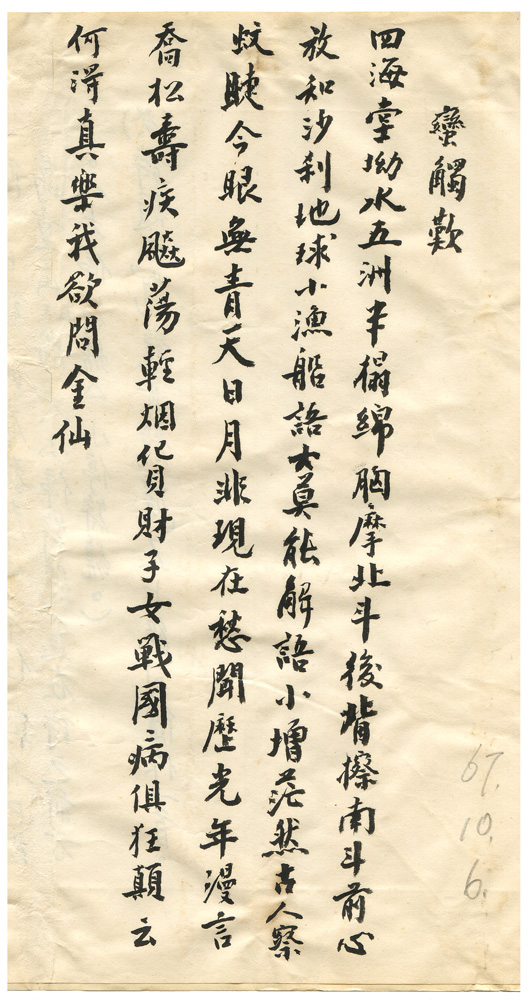 蠻觸歎
四海堂坳水五洲半榻綿胸摩北斗後背擦南斗前心
放和沙刹地球小漁船語大莫能解語小增茫然古人察
蚊睫今眼無青天日月非現在愁聞歷光年漫言
喬松壽疾飈蕩輕烟貨財子女戰國病俱狂顛云
何得真樂我欲問金仙
67.
10.
6.